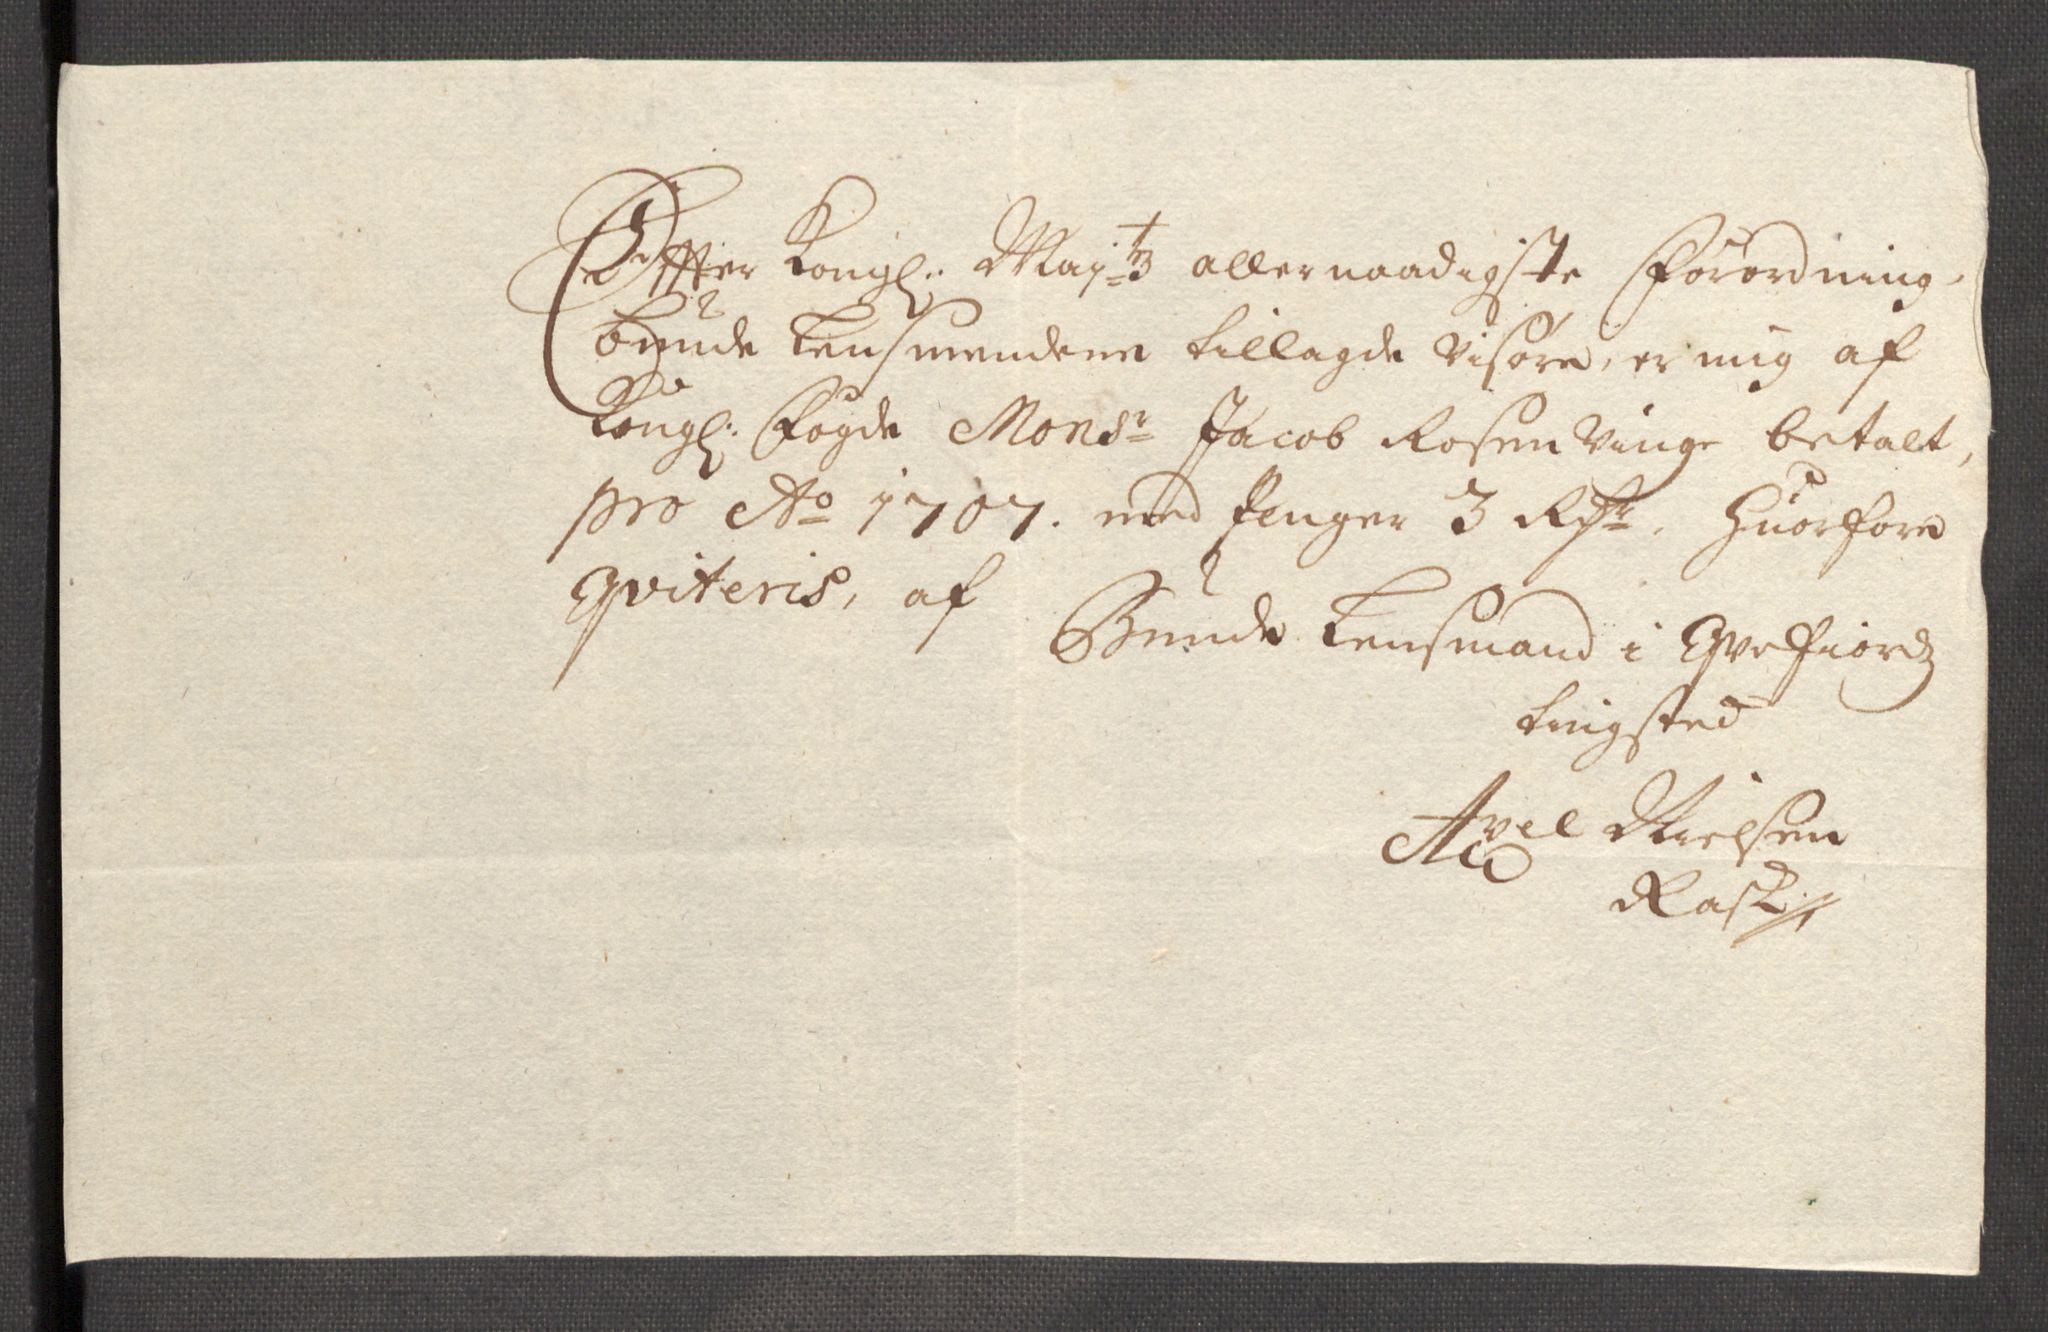 Effter Kongl: Maj:tz allernaadigste Forordning,
bunde Lensmendene tillagde Visøre, er mig af
Kongl: Fogde Monsr Jacob RosenVinge betalt,
pro Ao 1707. med Penger 3 Rdr. Huorfore
Qviteris, af
Bunde Lensmand i Qvefiordz
tingsted
Axel Nielsen
Rask